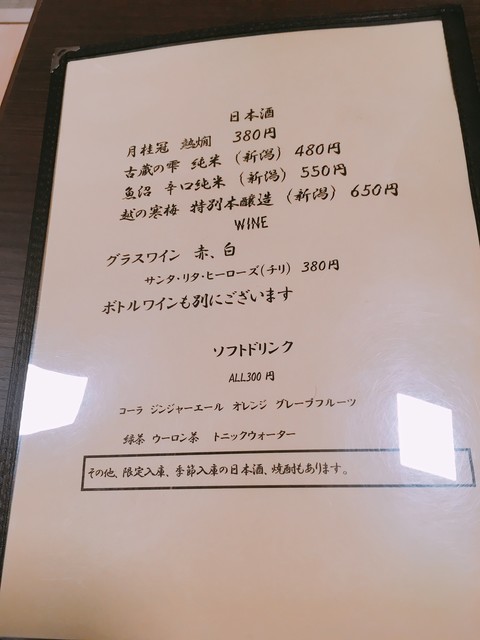 日本酒
月桂冠 熱燗 380円
古蔵の雫 純米 (新潟) 480円
魚沼 辛口純米 (新潟) 550円
越の寒梅 特別本醸造 (新潟) 650円
WINE
グラスワイン 赤、白
サンタ・リタ・ヒーローズ(チリ) 380円
ボトルワインも別にございます
ソフトドリンク
ALL300円
コーラ ジンジャーエール オレンジ グレープフルーツ
緑茶 ウーロン茶 トニックウォーター
その他、限定入庫、季節入庫の日本酒、焼酎もあります。